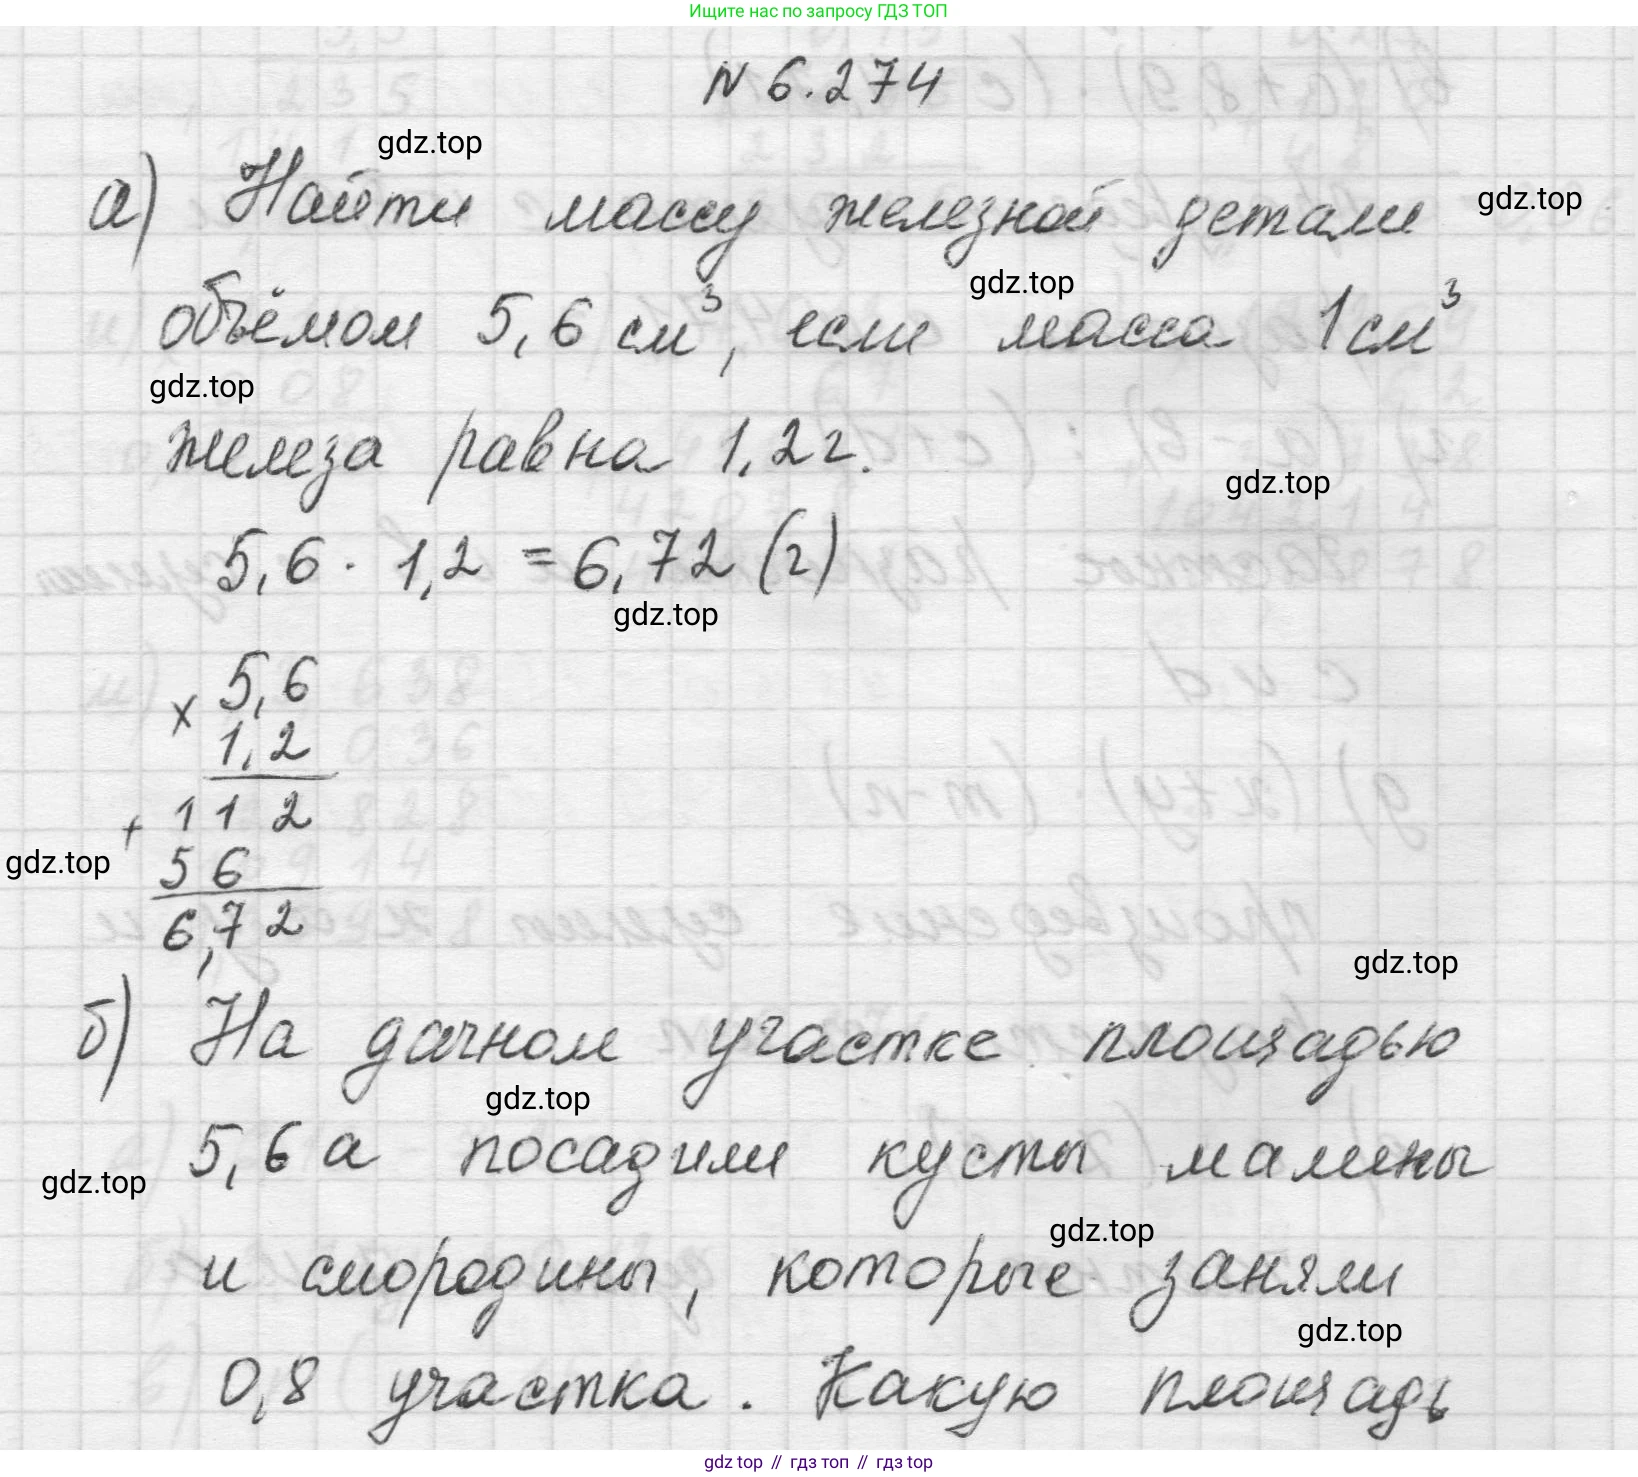 Ищите нас по запросу ГДЗ ТОП
N 6.274
gdz.top
а) Найти массу железной детали
gdz.top
gdz.top
объёмом 5,6 см³, если масса 1 см³
gdz.top
железа равна 1,2 г.
gdz.top
5,6 · 1,2 = 6,72 (г)
gdz.top
× 5,6
1,2
+ 112
gdz.top
56
6,72
gdz.top
б) На дачном участке площадью
gdz.top
5,6 а посадили кусты малины
gdz.top
gdz.top
и смородины, которые заняли
gdz.top
0,8 участка. Какую площадь
gdz.top // гдз топ // гдз top